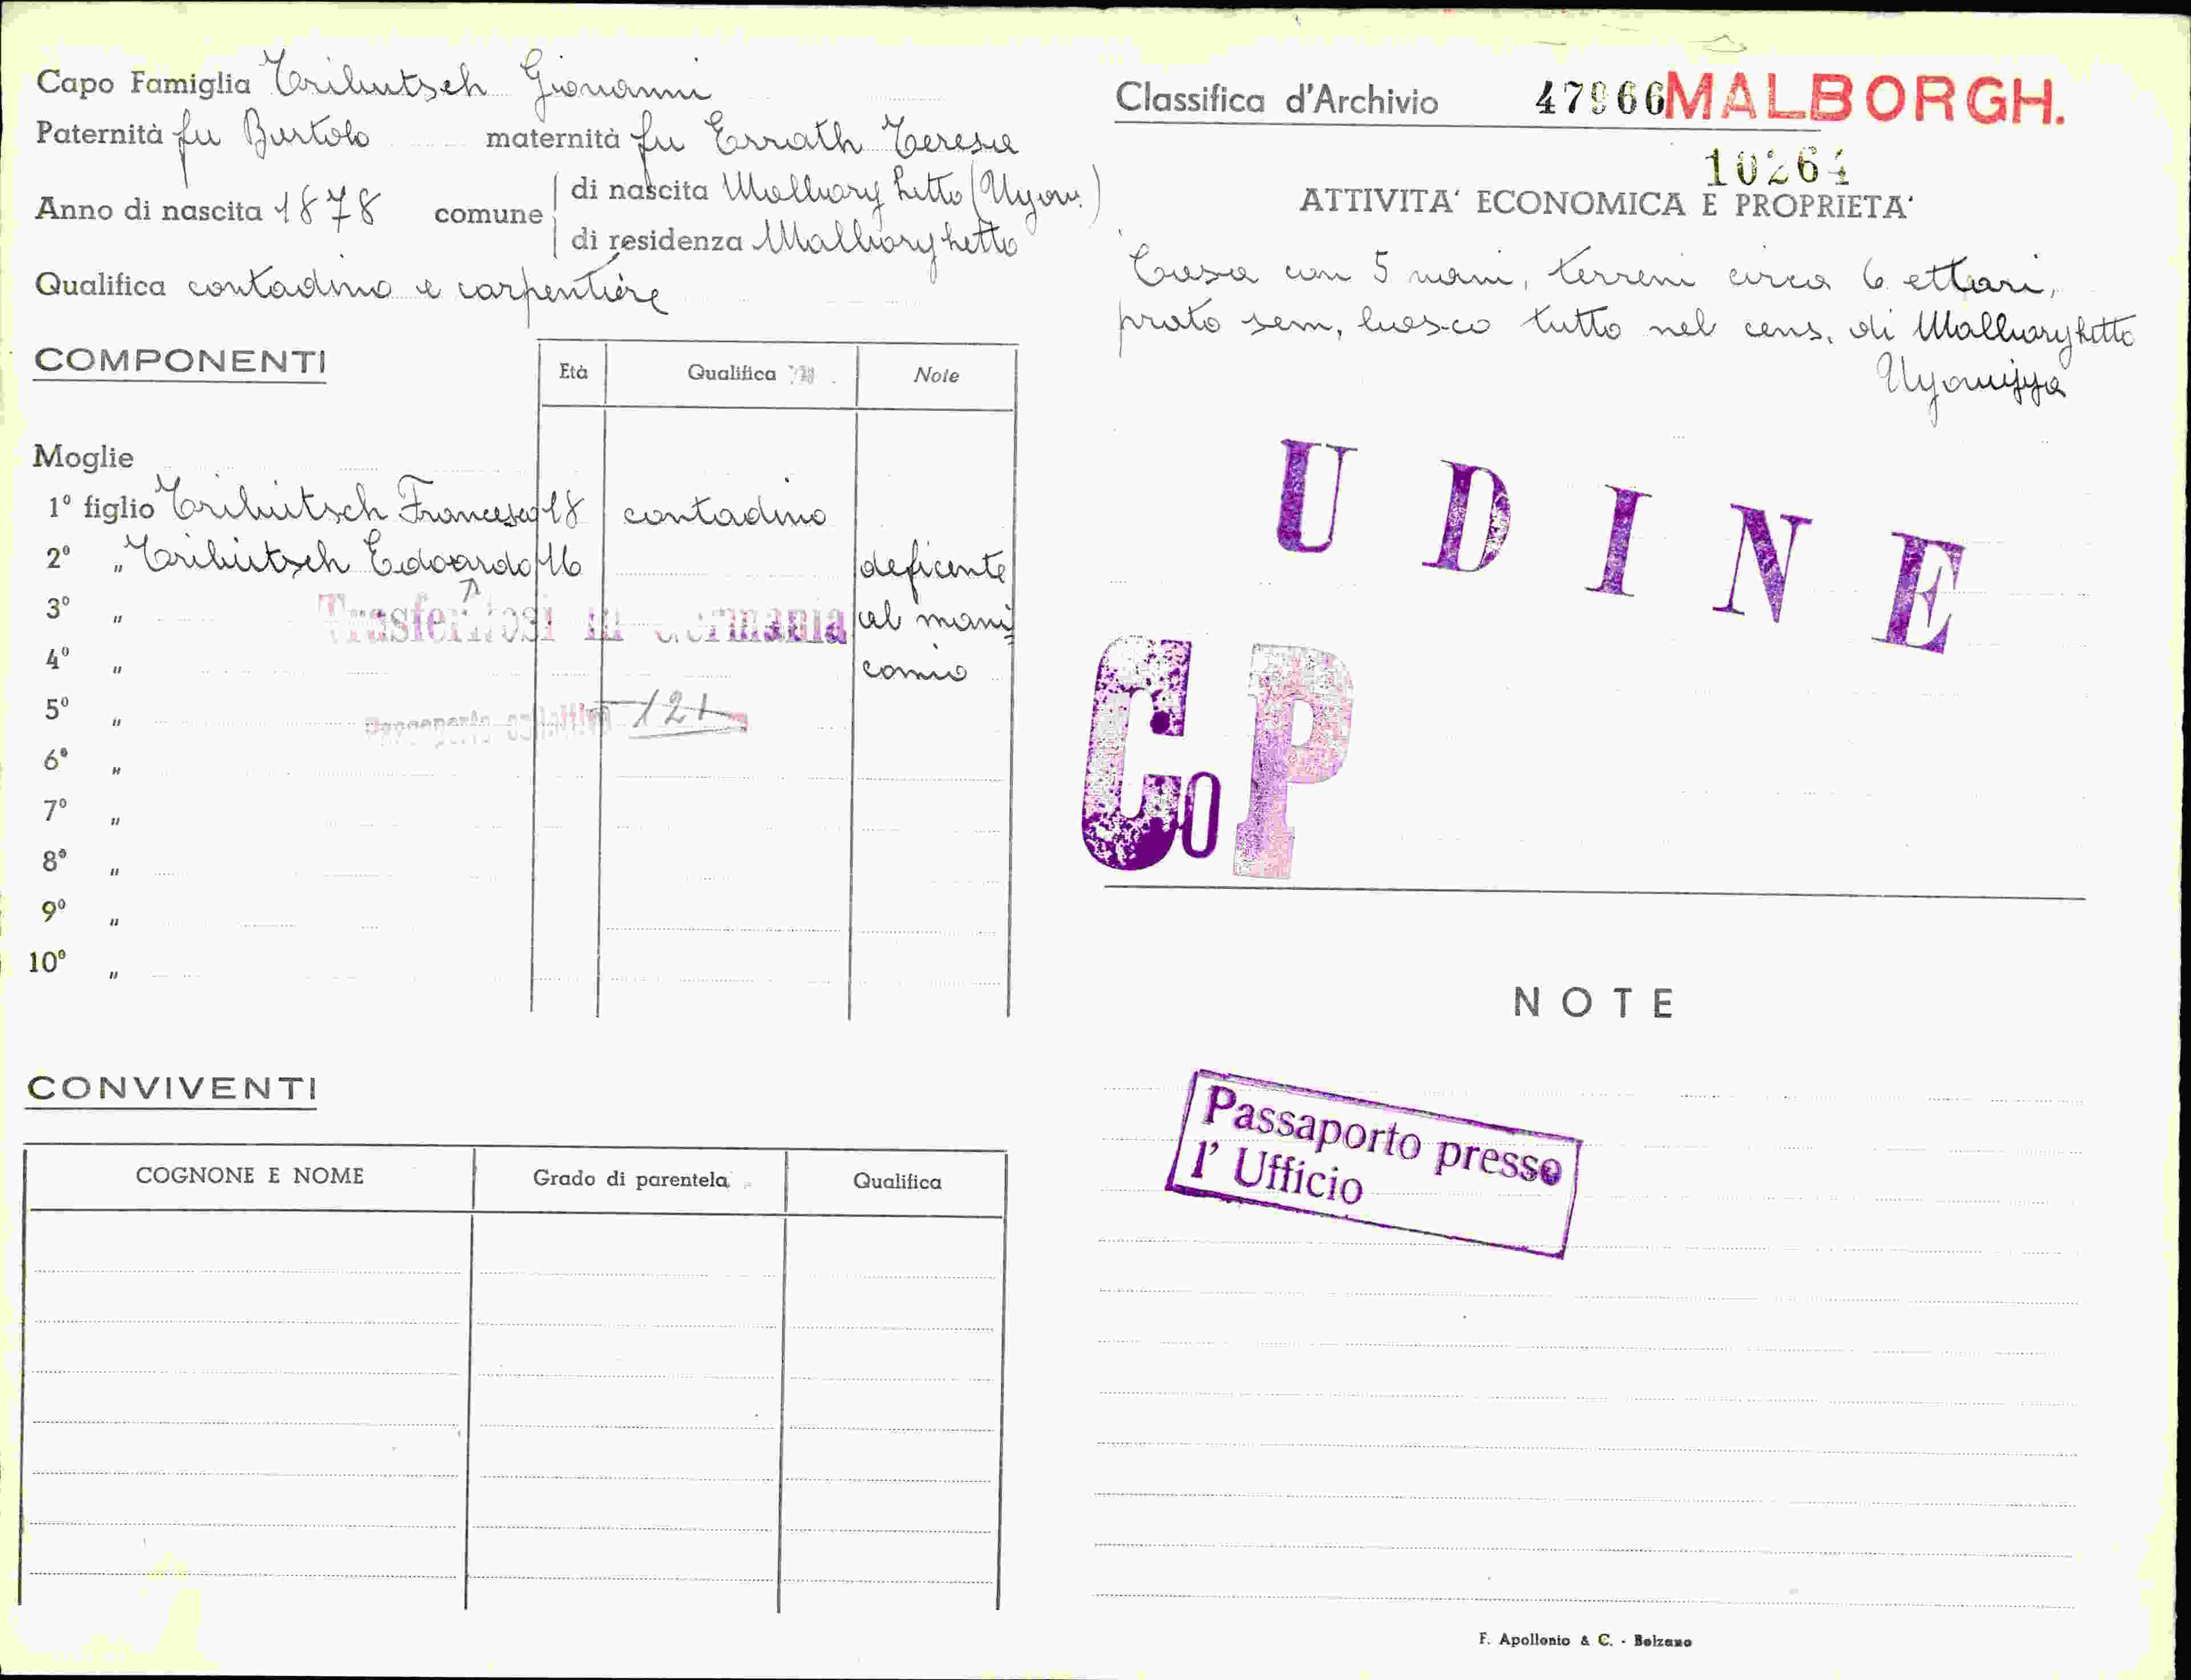 Capo Famiglia Tributsch Giovanni
Paternità fu Bartolo maternità fu Errath Teresa
Anno di nascita 1878 comune di nascita Malborghetto (Ugov.)
di residenza Malborghetto
Qualifica contadino e carpentiere
COMPONENTI
Età Qualifica Note
Moglie
1º figlio Tributsch Francesco 18 contadino
2º " Tributsch Edoardo 16 deficente
3º " Trasferitosi in Germania al mani=
4º " comio
5º " Passaporto collettivo 121
6º "
7º "
8º "
9º "
10º "
CONVIVENTI
COGNONE E NOME Grado di parentela Qualifica
Classifica d'Archivio 47966 MALBORGH.
10264
ATTIVITA' ECONOMICA E PROPRIETA'
Casa con 5 vani, terreni circa 6 ettari,
prato sem, bosco tutto nel cens. di Malborghetto
Ugovizza
UDINE
Co P
NOTE
Passaporto presso
l' Ufficio
F. Apollonio & C. - Bolzano